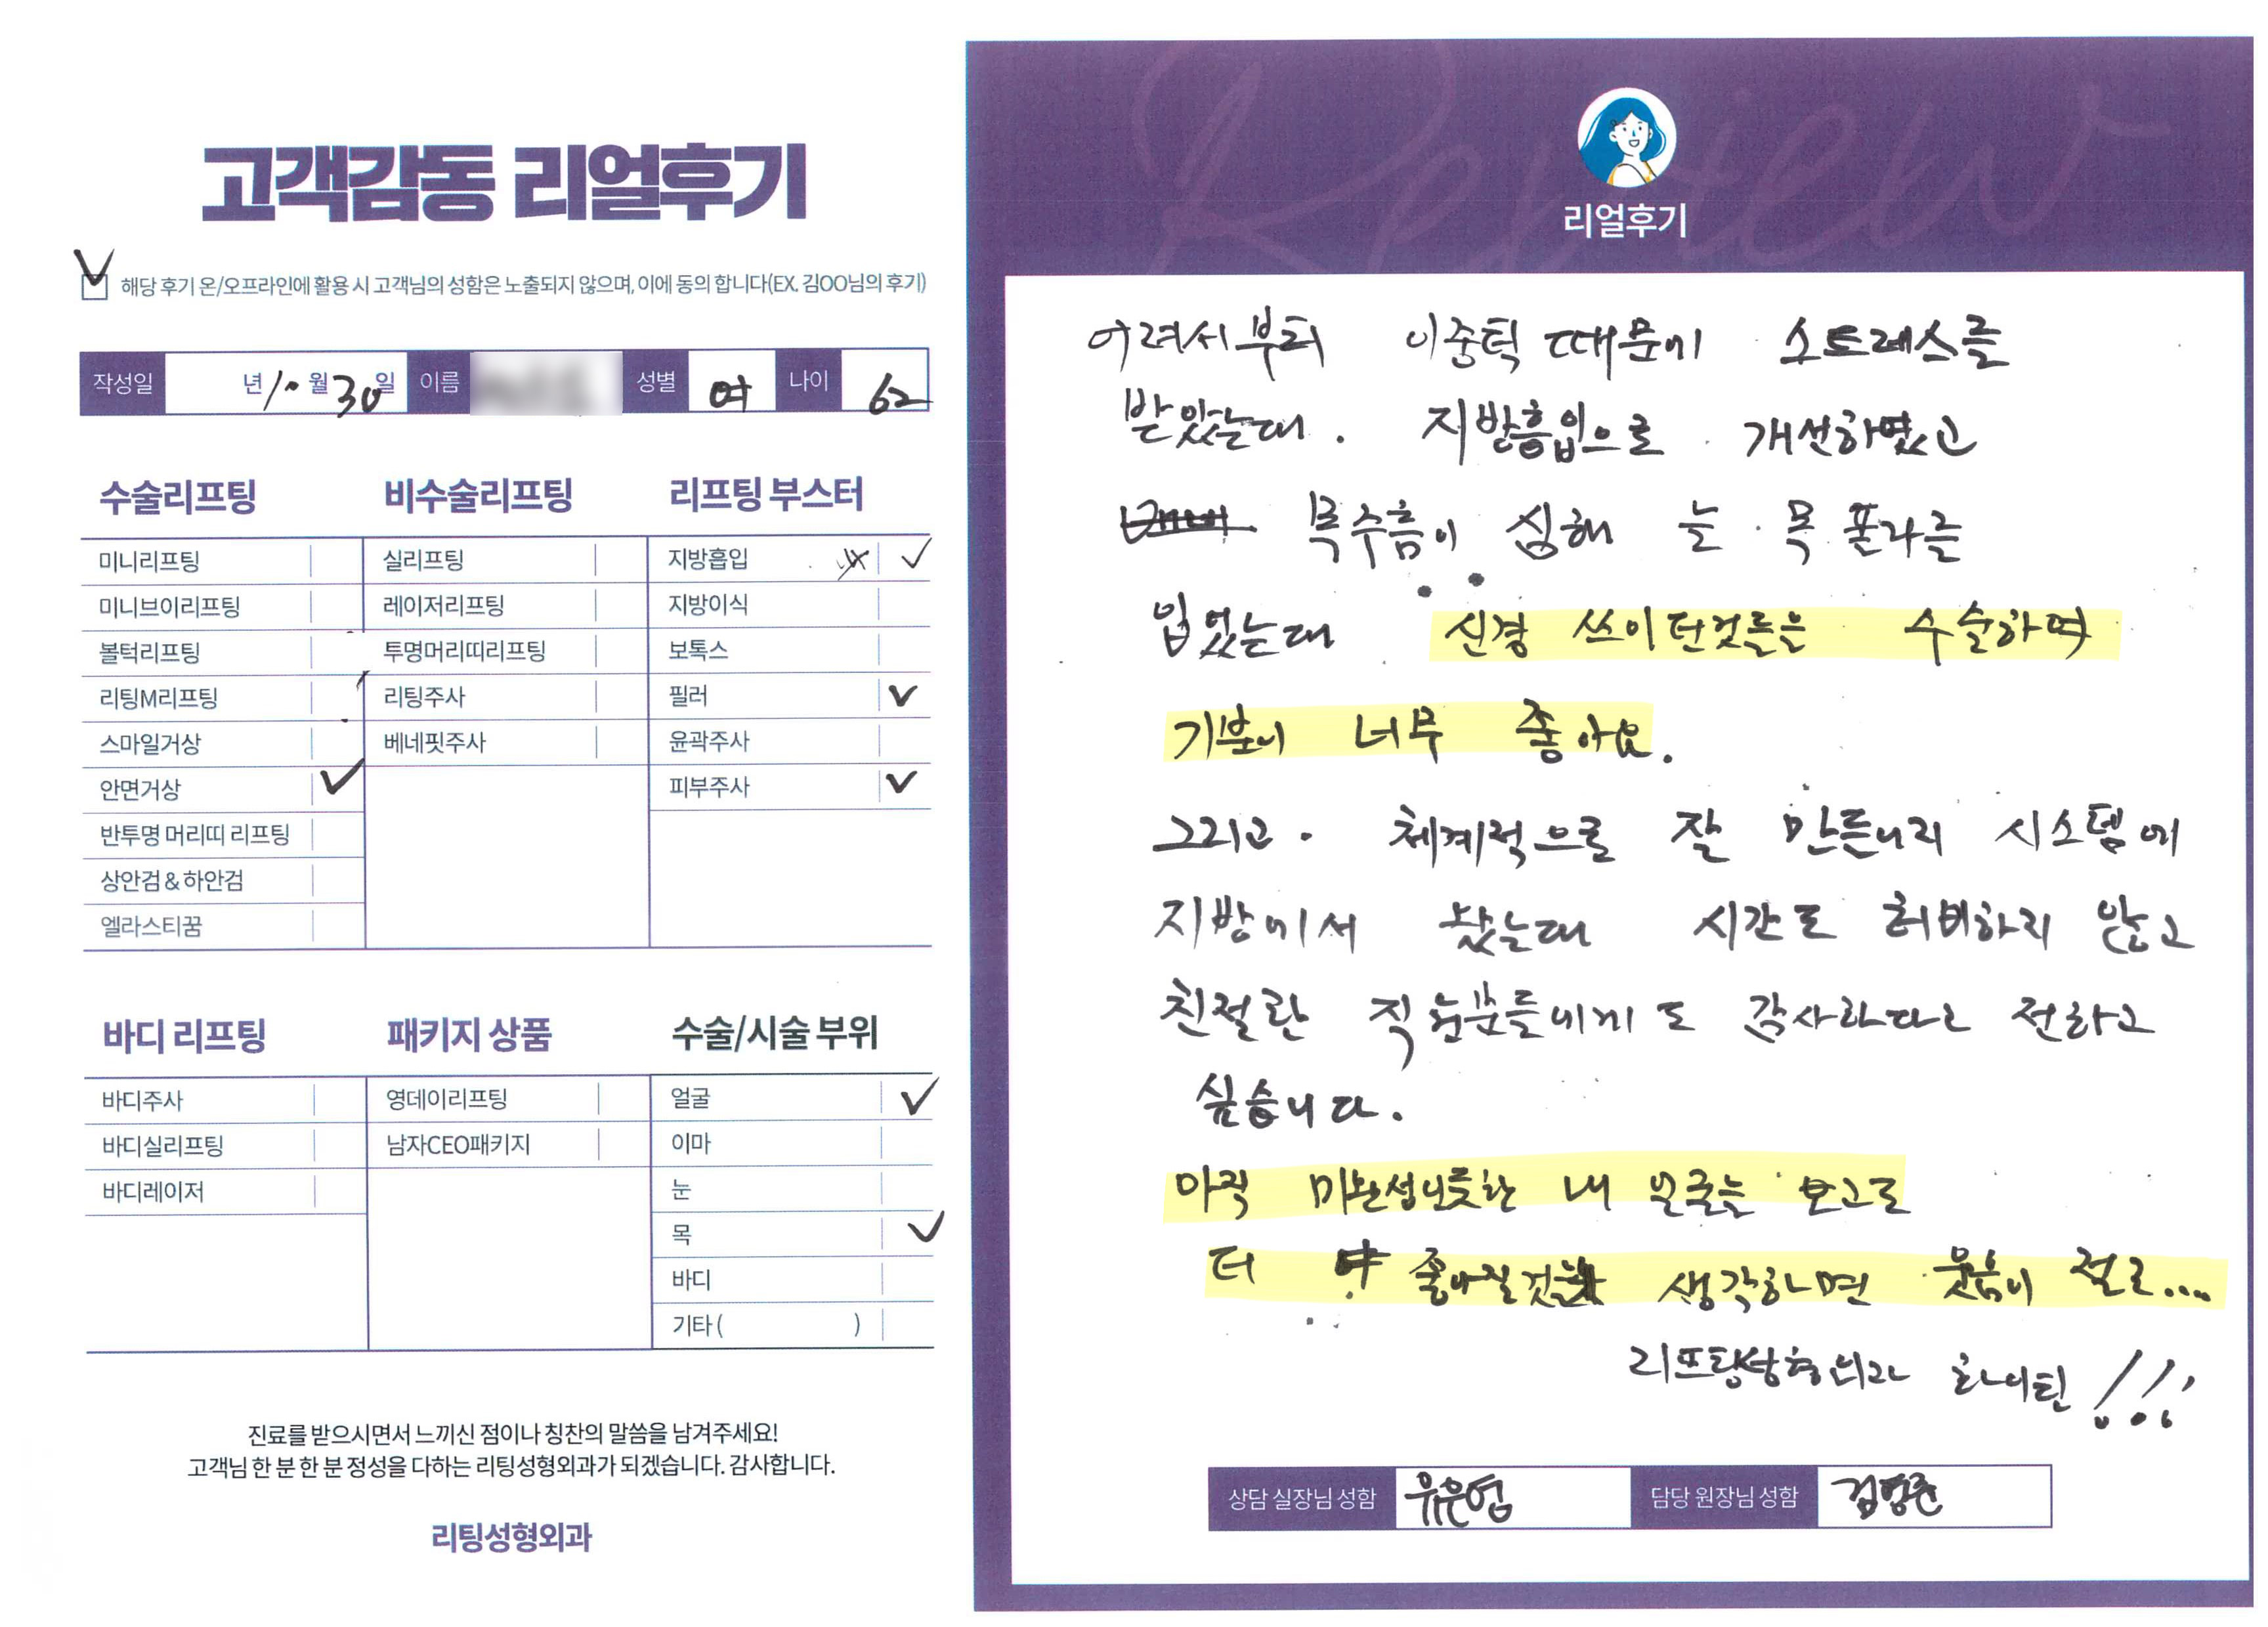 고객감동 리얼후기
해당 후기 온/오프라인에 활용 시 고객님의 성함은 노출되지 않으며, 이에 동의 합니다(EX. 김OO님의 후기)
작성일 년 10 월 30 일 이름 성별 여 나이 62
수술리프팅
미니리프팅
미니브이리프팅
볼턱리프팅
리팅M리프팅
스마일거상
안면거상
반투명 머리띠 리프팅
상안검 & 하안검
엘라스티꿈
비수술리프팅
실리프팅
레이저리프팅
투명머리띠리프팅
리팅주사
베네핏주사
리프팅 부스터
지방흡입
지방이식
보톡스
필러
윤곽주사
피부주사
바디 리프팅
바디주사
바디실리프팅
바디레이저
패키지 상품
영데이리프팅
남자CEO패키지
수술/시술 부위
얼굴
이마
눈
목
바디
기타 ( )
진료를 받으시면서 느끼신 점이나 칭찬의 말씀을 남겨주세요!
고객님 한 분 한 분 정성을 다하는 리팅성형외과가 되겠습니다. 감사합니다.
리팅성형외과
Review
리얼후기
어려서부터 이중턱 때문에 스트레스를
받았는대. 지방흡입으로 개선하였고
목주름이 심해 늘 목폴라를
입었는대 신경 쓰이던것들을 수술하여
기분이 너무 좋아요.
그리고. 체계적으로 잘 만든 시스템에
지방에서 왔는대 시간도 허비하지 않고
친절한 직원분들에게도 감사하다고 전하고
싶습니다.
아직 미완성인듯한 내 얼굴는 보고도
더 좋아질것을 생각하면 웃음이 절로...
리프팅성형외과 화이팅 !!!
상담 실장님 성함 유은영 담당 원장님 성함